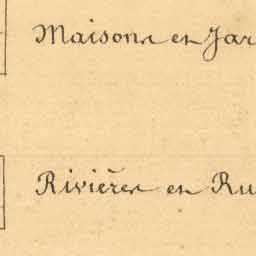 Maisons et Jar
Rivières et Ru